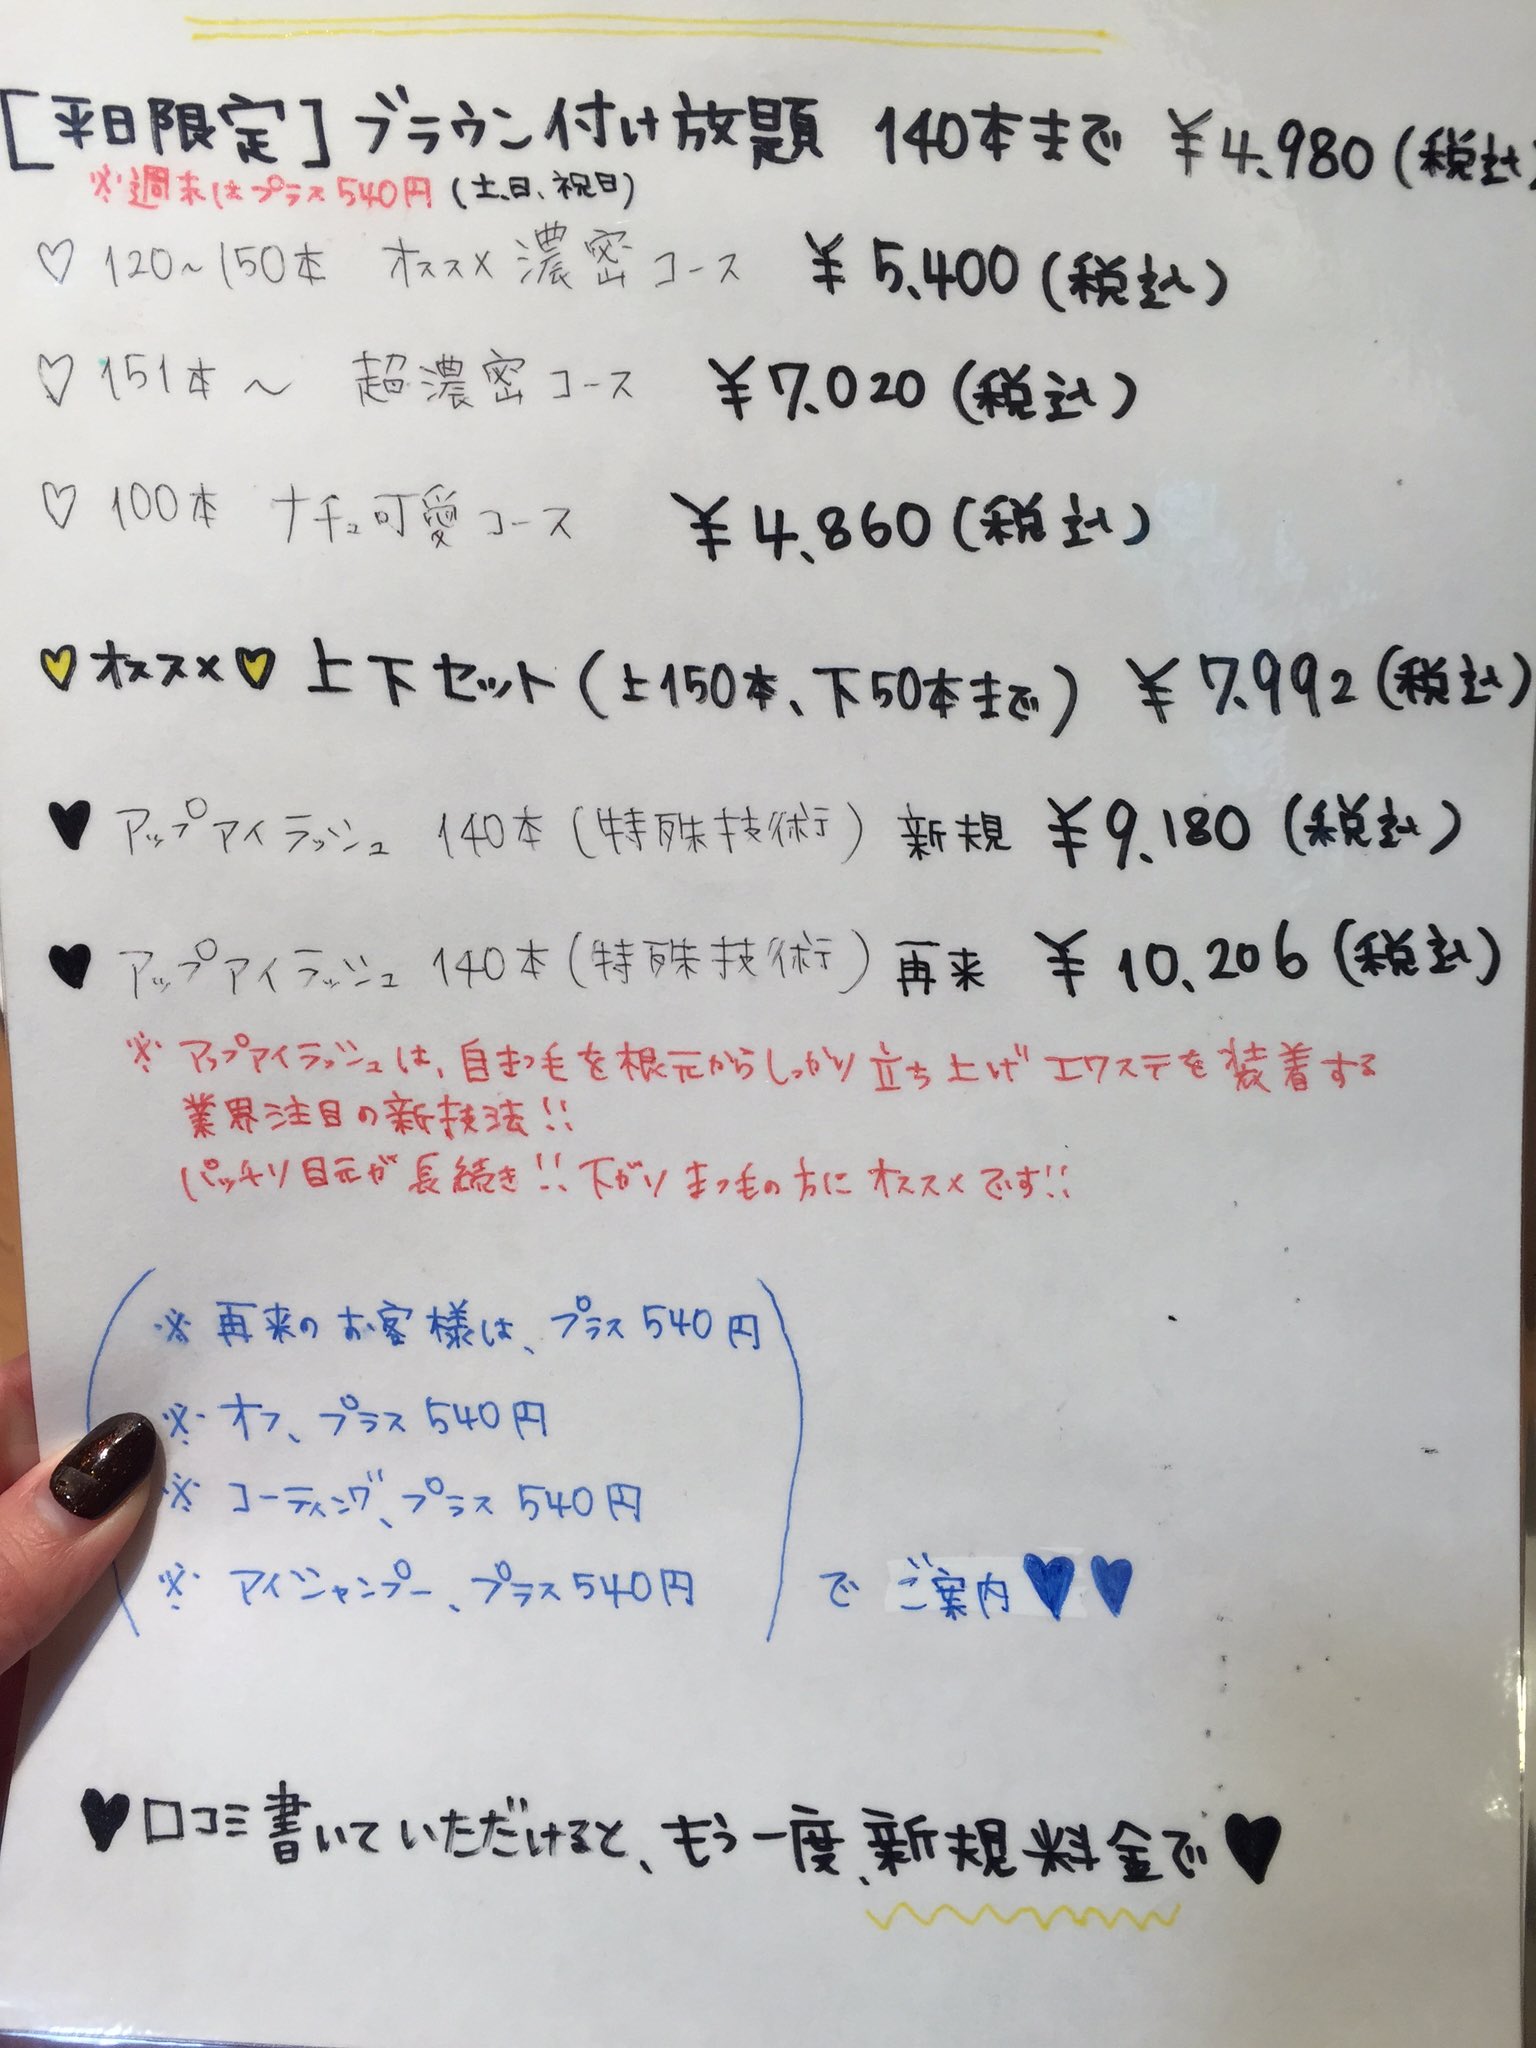 [平日限定] ブラウン付け放題 140本まで ¥4,980 (税込)
※週末はプラス540円 (土、日、祝日)
♡ 120~150本 オススメ 濃密コース ¥5,400 (税込)
♡ 151本~ 超濃密コース ¥7,020 (税込)
♡ 100本 ナチュ可愛コース ¥4,860 (税込)
♡オススメ♡ 上下セット (上150本、下50本まで) ¥7,992 (税込)
♥ アップアイラッシュ 140本 (特殊技術) 新規 ¥9,180 (税込)
♥ アップアイラッシュ 140本 (特殊技術) 再来 ¥10,206 (税込)
※ アップアイラッシュは、自まつ毛を根元からしっかり立ち上げエクステを装着する
業界注目の新技法!!
パッチリ目元が長続き!! 下がりまつ毛の方にオススメです!!
※ 再来のお客様は、プラス540円
※ オフ、プラス540円
※ コーティング、プラス540円
※ アイシャンプー、プラス540円 でご案内♥♥
♥口コミ書いていただけると、もう一度、新規料金で♥